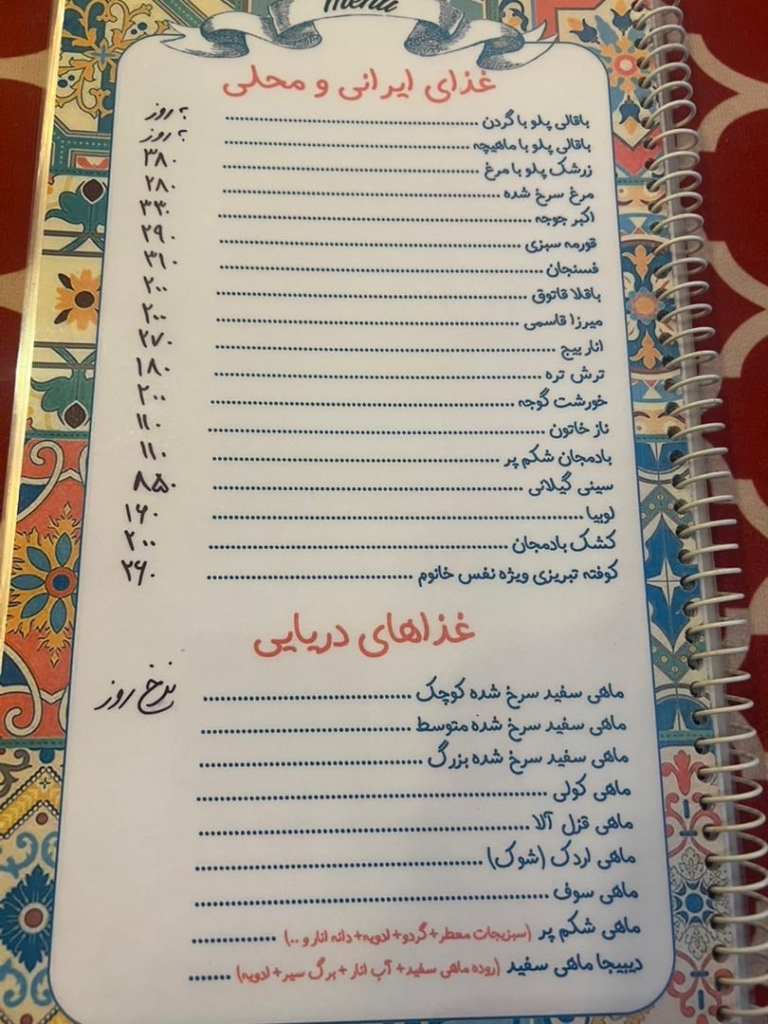 menu
غذای ایرانی و محلی
باقالی پلو با گردن ........ به روز
باقالی پلو با ماهیچه ........ به روز
زرشک پلو با مرغ ........ ۳۸۰
مرغ سرخ شده ........ ۲۸۰
اکبر جوجه ........ ۳۳۰
قورمه سبزی ........ ۲۹۰
فسنجان ........ ۳۱۰
باقلا قاتوق ........ ۲۰۰
میرزا قاسمی ........ ۲۰۰
انار بیج ........ ۲۷۰
ترش تره ........ ۱۸۰
خورشت گوجه ........ ۲۰۰
ناز خاتون ........ ۱۱۰
بادمجان شکم پر ........ ۱۱۰
سینی گیلانی ........ ۸۵۰
لوبیا ........ ۱۶۰
کشک بادمجان ........ ۲۰۰
کوفته تبریزی ویژه نفس خانوم ........ ۲۶۰
غذاهای دریایی
ماهی سفید سرخ شده کوچک ........ نرخ روز
ماهی سفید سرخ شده متوسط ........
ماهی سفید سرخ شده بزرگ ........
ماهی کولی ........
ماهی قزل آلا ........
ماهی اردک (شوک) ........
ماهی سوف ........
ماهی شکم پر (سبزیجات معطر + گردو + ادویه + دانه انار و ..) ........
دیبیجا ماهی سفید (روده ماهی سفید + آب انار + برگ سیر + ادویه) .......